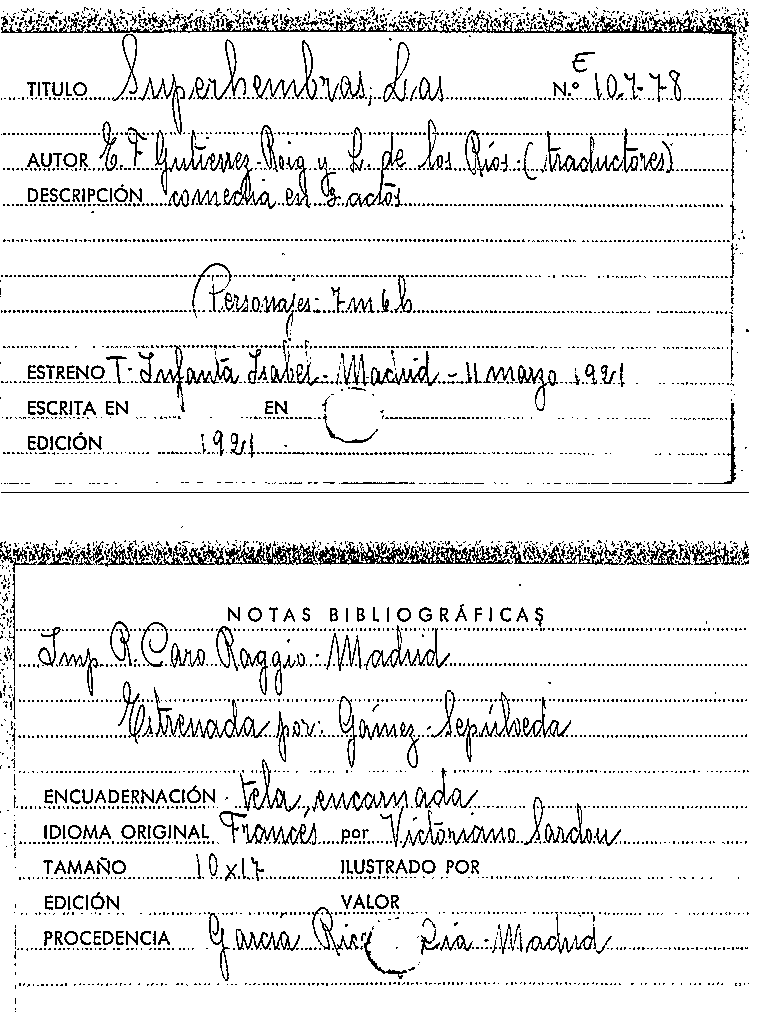 TITULO Superhembras, Las N.º E 107-78
AUTOR E. F Gutierrez-Roig y L. de los Ríos-(traductores)
DESCRIPCIÓN comedia en 3 actos
Personajes: 7 m 6 h
ESTRENO T- Infanta Isabel - Madrid - 11 marzo 1921
ESCRITA EN EN
EDICIÓN 1921
NOTAS BIBLIOGRÁFICAS
Imp R. Caro Raggio - Madrid
Estrenada por: Gámez-Sepúlveda
ENCUADERNACIÓN tela, encarnada
IDIOMA ORIGINAL Francés por Victoriano Sardou
TAMAÑO 10x17 ILUSTRADO POR
EDICIÓN VALOR
PROCEDENCIA García Rico Madrid